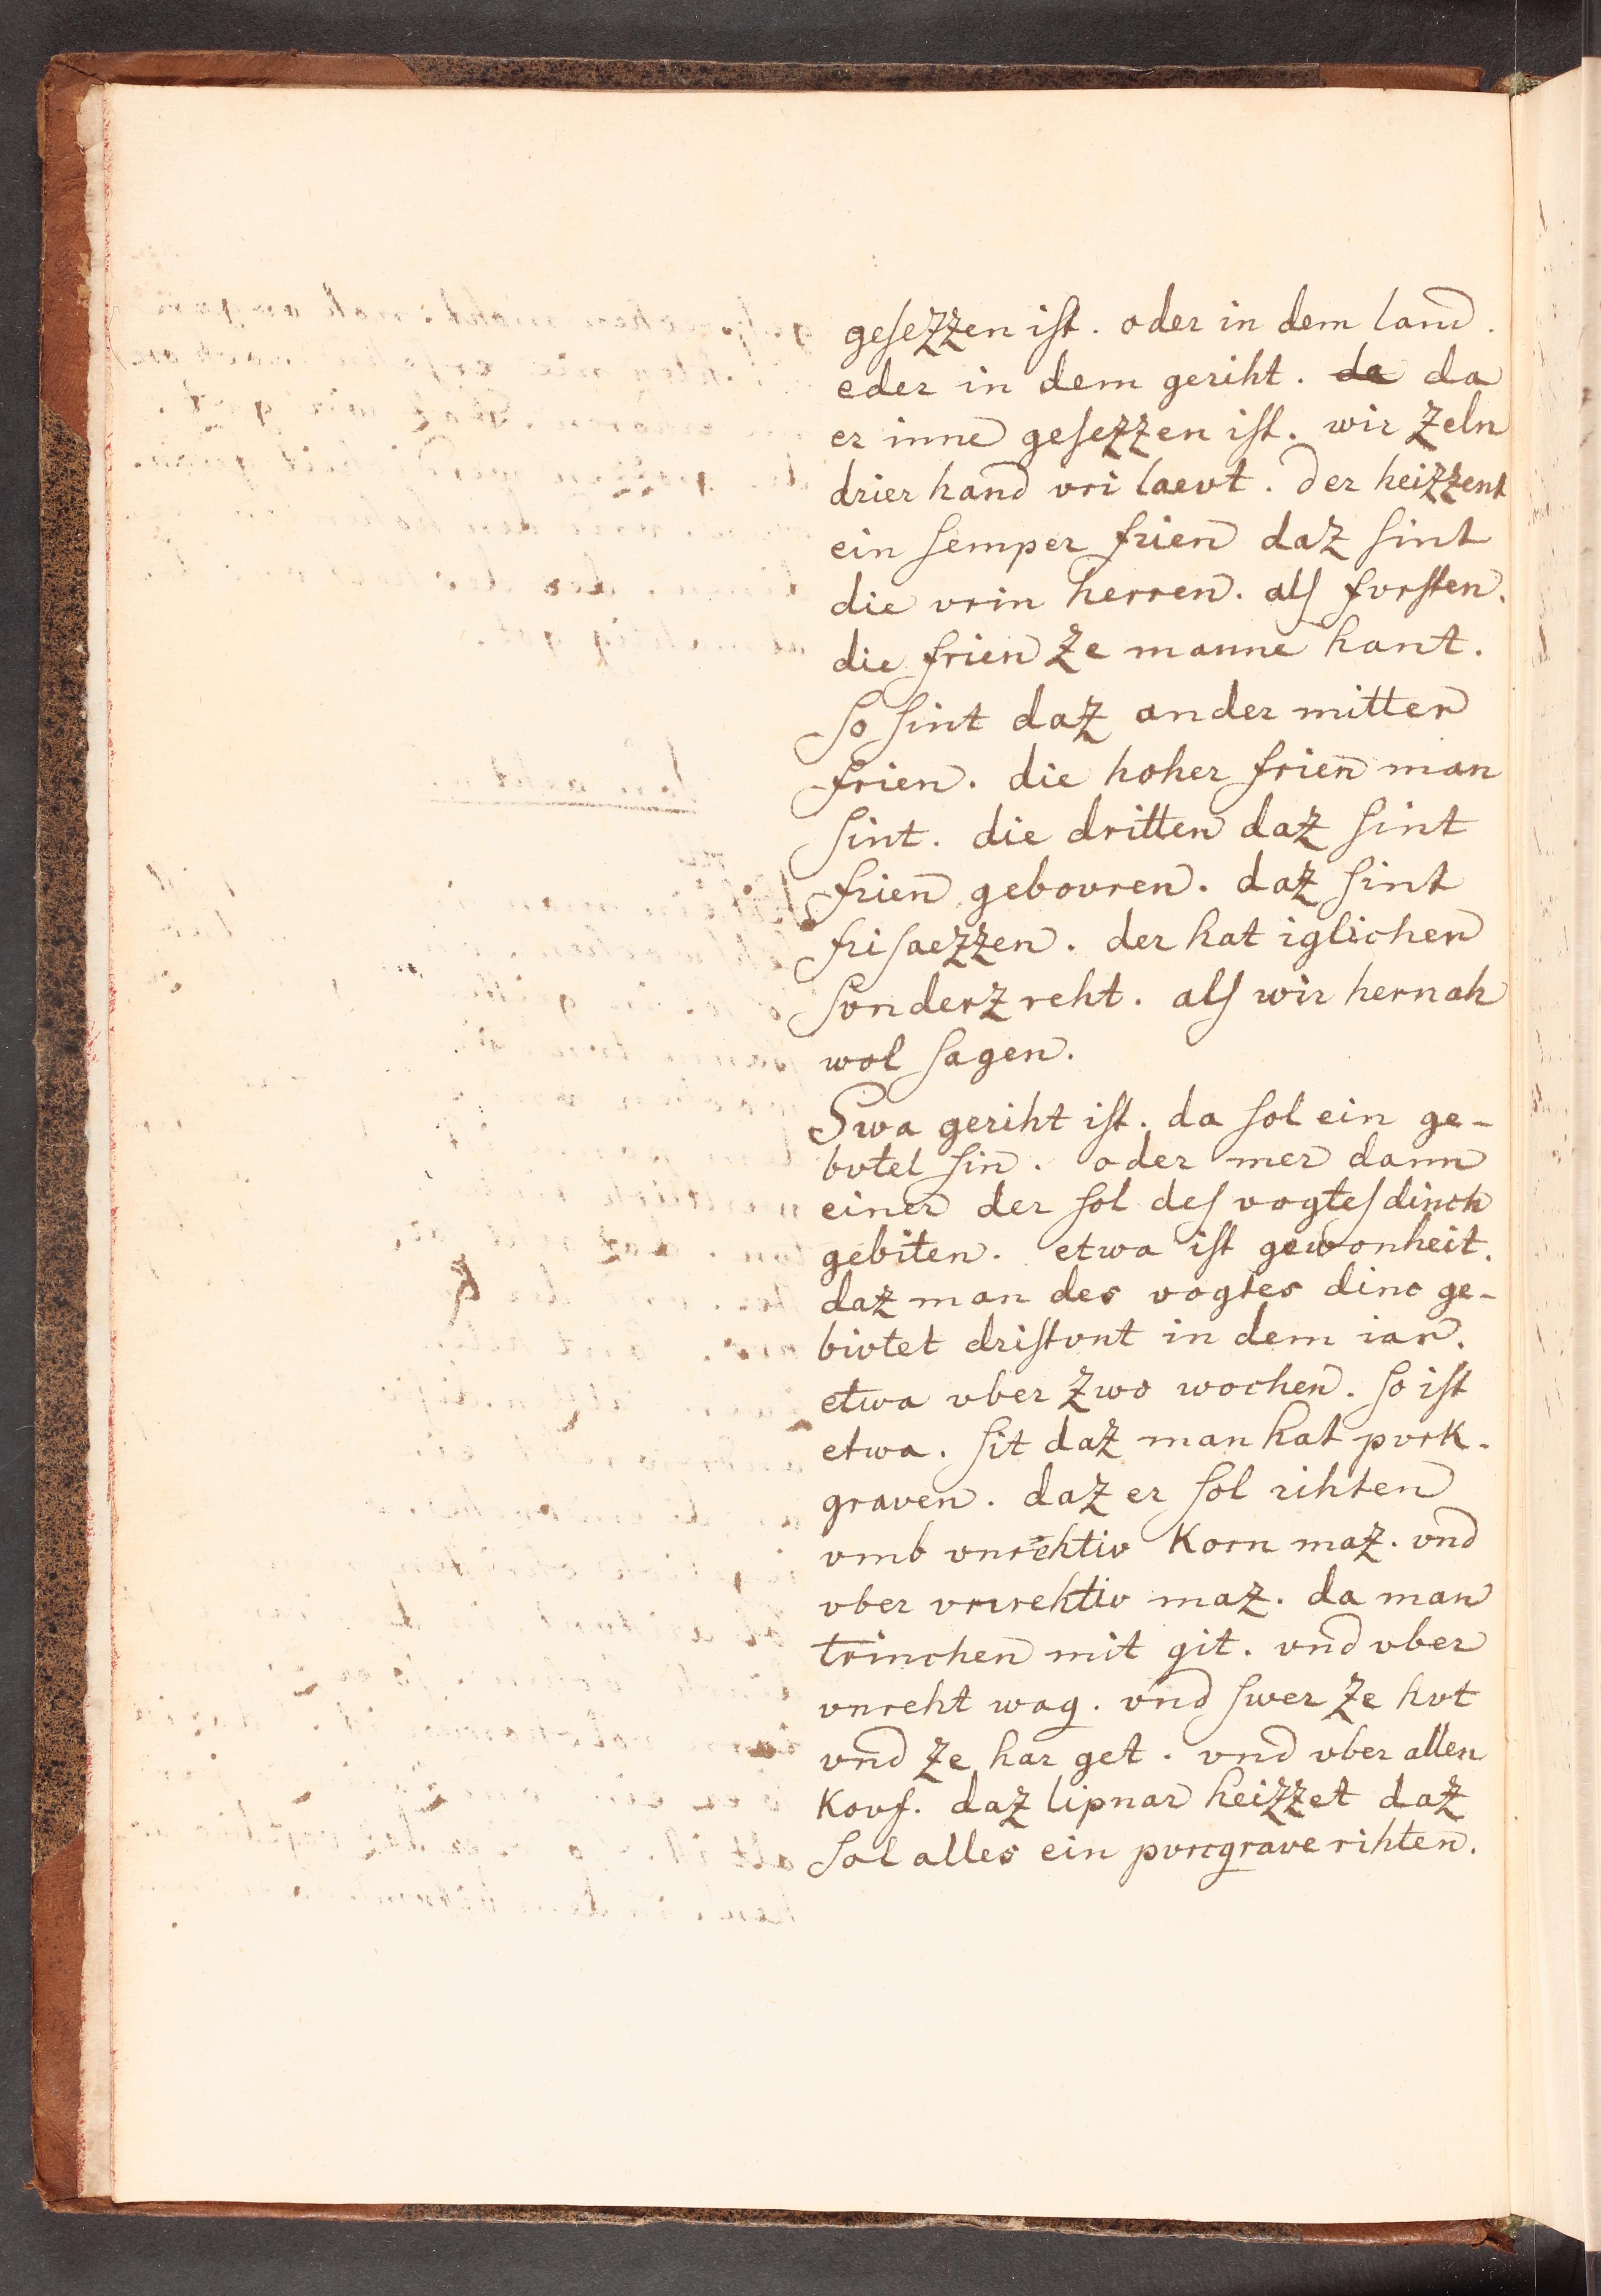 geſezzen iſt. oder in dem land.
eder in dem geriht. da da
er inne geſezzen iſt. wir zeln
drier hand vri laevt. der heizzent
ein ſemper frien daz ſint
die vrin herren. alſ fvrſten.
die frien ze manne hant.
ſo ſint daz ander mitter
frien. die hoher frien man
ſint. die dritten daz ſint
frien gebovren. daz ſint
friſaezzen. der hat iglichen
ſonderz reht. alſ wir hernah
wol ſagen.
Swa geriht iſt. da ſol ein ge-
bvtel ſin. oder mer dann
einer der ſol deſ vogteſ dinch
gebiten. etwa iſt gewonheit.
daz man des vogtes dinc ge-
bivtet driſtvnt in dem iar.
etwa vber zwo wochen. ſo iſt
etwa. ſit daz man hat pvrk-
graven. daz er ſol rihten
vmb vnrehtiv Korn maz. vnd
vber vnrehtiv maz. da man
trinchen mit git. vnd vber
vnreht wag. vnd ſwer ze hvt
vnd ze har get. vnd vber allen
Kovf. daz lipnar heizzet daz
ſol alles ein pvrcgrave rihten.